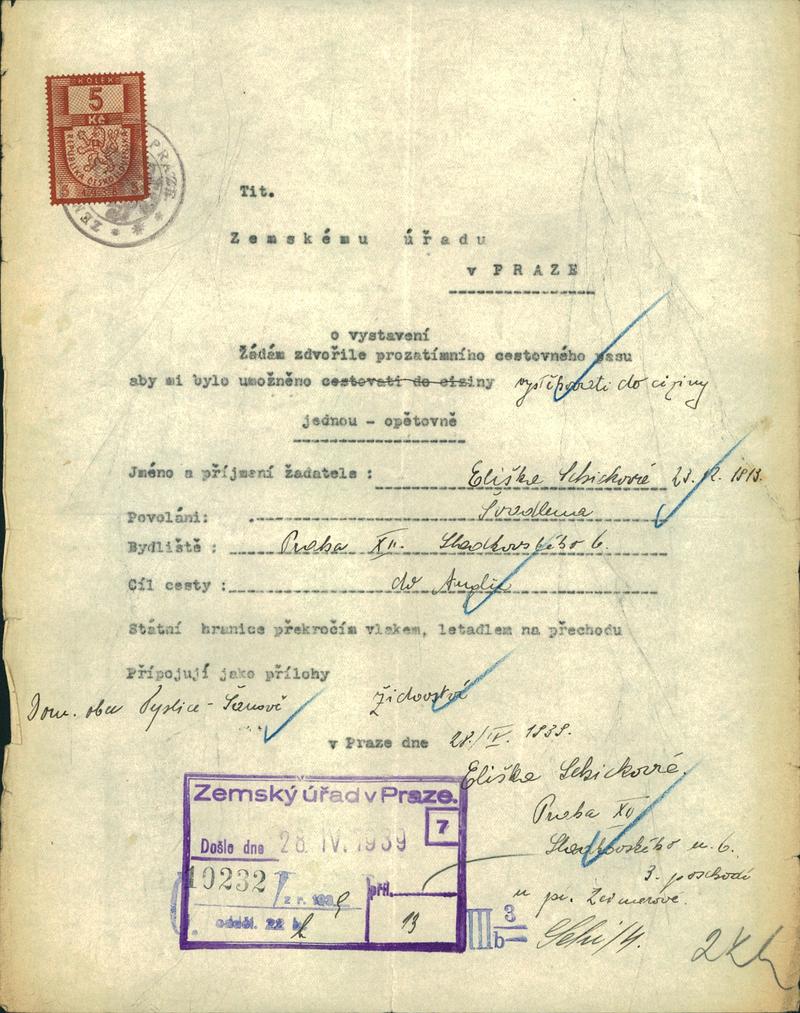 KOLEK
5
Kč
REPUBLIKA ČESKOSLOVENSKÁ
5 5
Tit.
Zemskému úřadu
v PRAZE
o vystavení
Žádám zdvořile prozatímního cestovného pasu
aby mi bylo umožněno cestovati do ciziny vystěhovati do ciziny
jednou - opětovně
Jméno a příjmení žadatele : Eliška Schicková 23.12. 1913.
Povolání: Švadlena
Bydliště : Praha XII. Sladkovského 6.
Cíl cesty : do Anglie
Státní hranice překročím vlakem, letadlem na přechodu
Přípojují jako přílohy
Dom. obec Teplice - Šanově židovství
v Praze dne 28./IV. 1939.
Eliška Schicková.
Praha XII
Sladkovského u. 6.
3. poschodí
u pí.
Zemský úřad v Praze.
7
Došlo dne 28. IV. 1939
10232 z r. 1939 příl.
odděl. 22 13
III 3
b
Schi/4.